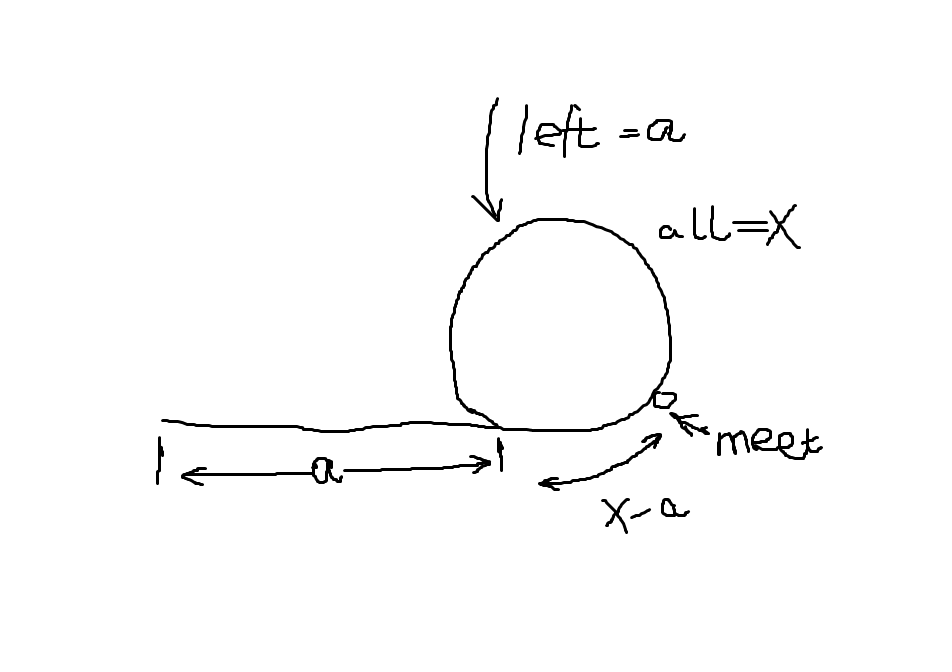 left = a
all=X
meet
a
X-a